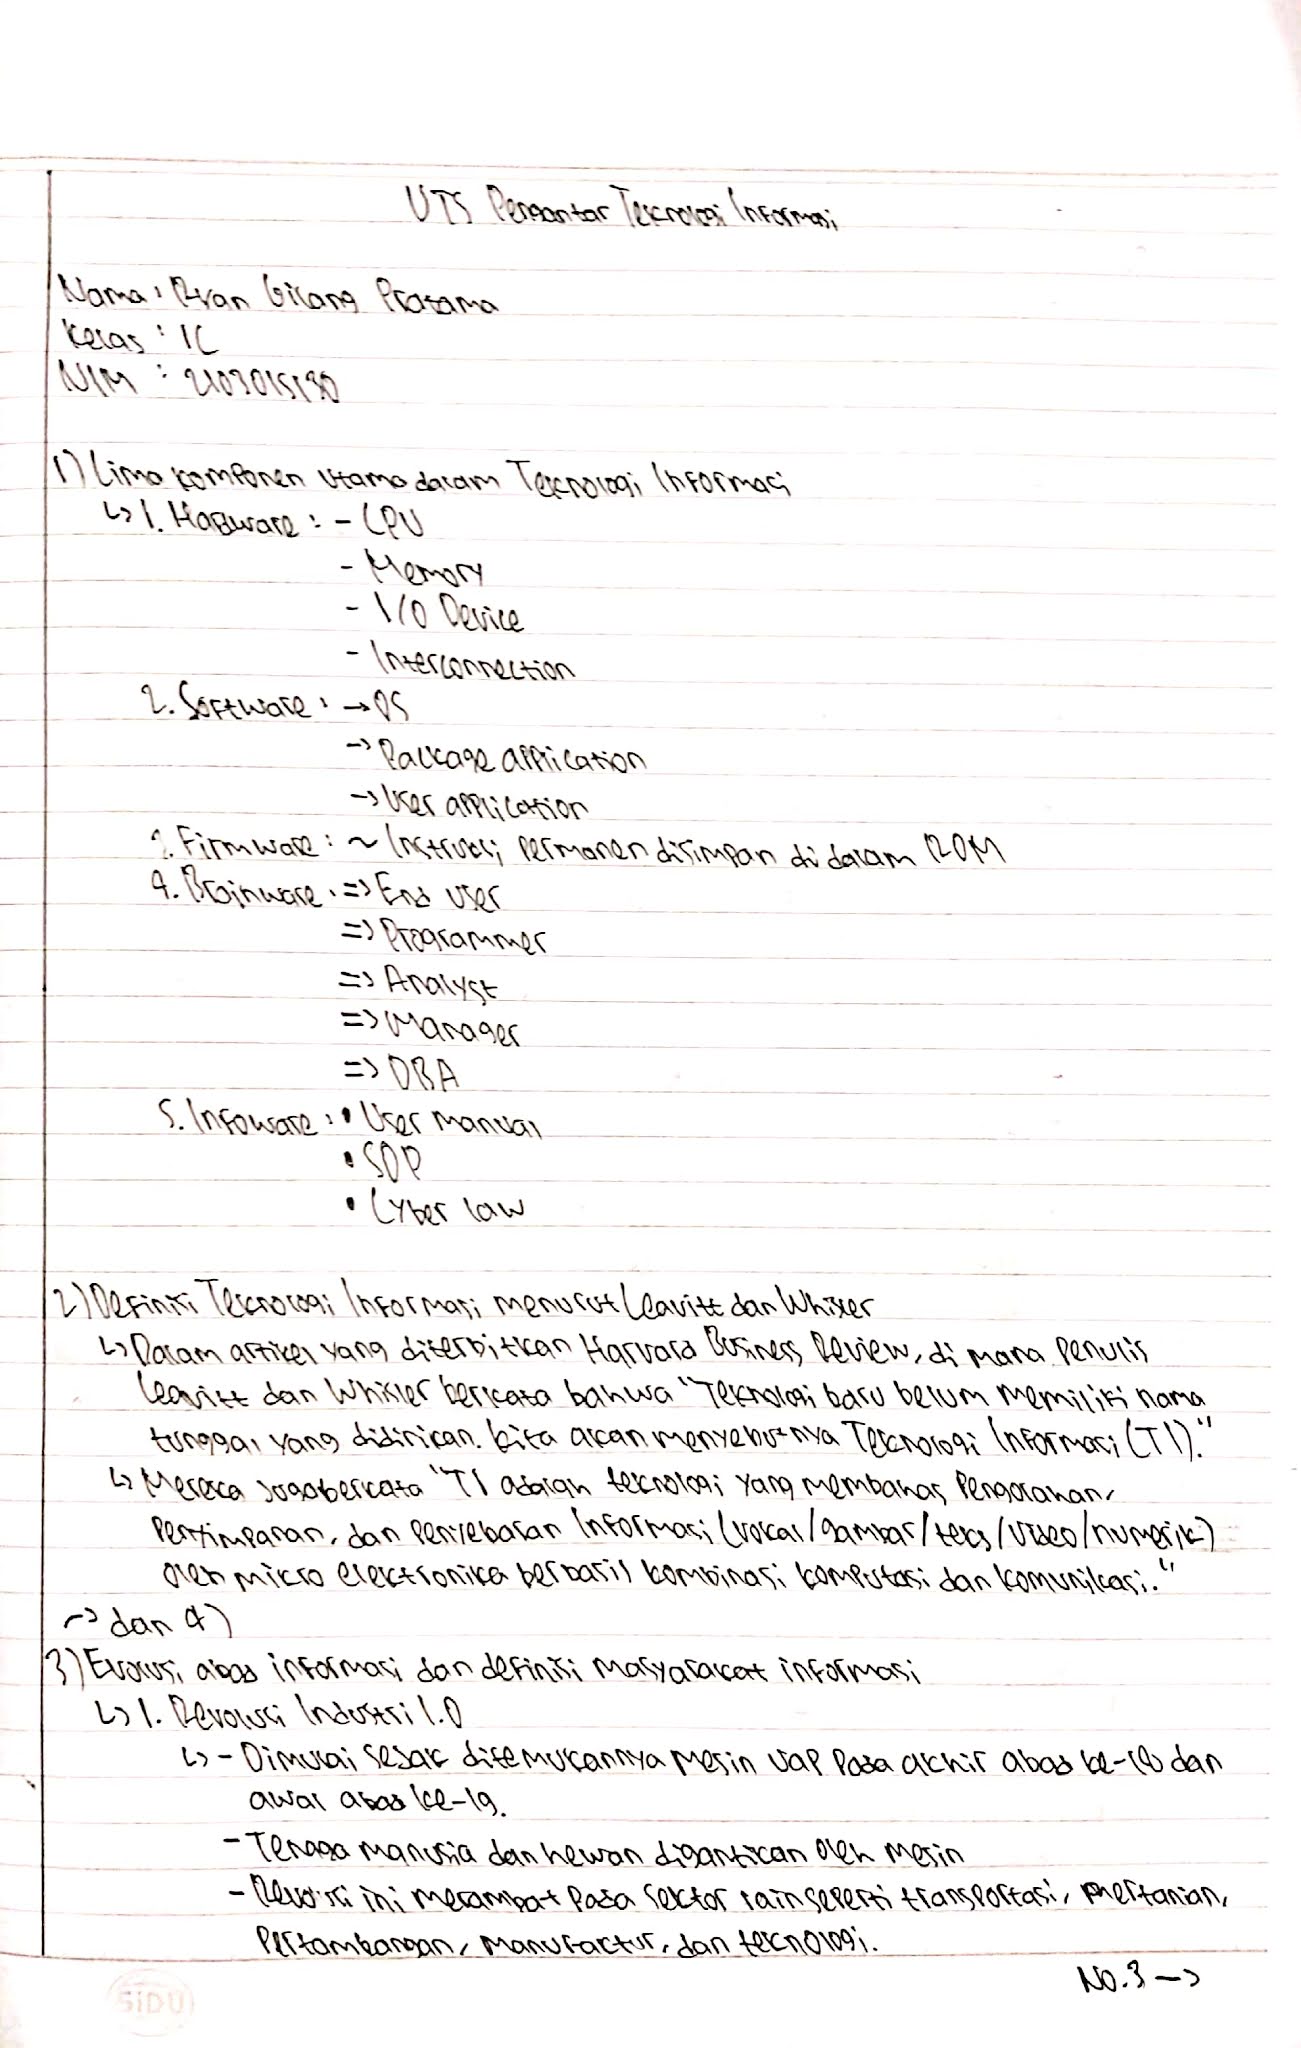 UTS Pengantar Teknologi Informasi
Nama : Ryan Gilang Pratama
Kelas : 1C
NIM : 2103015130
1) Lima komponen utama dalam Teknologi Informasi
↳ 1. Hadware : - CPU
- Memory
- I/O Device
- Interconnection
2. Software : → OS
→ Package application
→ User application
3. Firmware : ~ Instruksi permanen disimpan di dalam ROM
4. Brainware : => End user
=> Programmer
=> Analyst
=> Manager
=> DBA
5. Infoware : • User manual
• SOP
• Cyber law
2) Definisi Teknologi Informasi menurut Leavitt dan Whisler
↳ Dalam artikel yang diterbitkan Harvard Business Review, di mana penulis
Leavitt dan Whisler berkata bahwa "Teknologi baru belum memiliki nama
tunggal yang didirikan. kita akan menyebutnya Teknologi Informasi (TI)."
↳ Mereka juga berkata "TI adalah teknologi yang membahas pengolahan,
penyimpanan, dan penyebaran Informasi (vokal/gambar/teks/video/numerik)
oleh mikro elektronika berbasis kombinasi komputasi dan komunikasi."
→ dan 4)
3) Evolusi abad informasi dan definisi masyarakat informasi
↳ 1. Revolusi Industri 1.0
↳ - Dimulai sejak ditemukannya mesin uap pada akhir abad ke-18 dan
awal abad ke-19.
- Tenaga manusia dan hewan digantikan oleh mesin
- Revolusi ini merambat pada sektor lain seperti transportasi, pertanian,
pertambangan, manufaktur, dan teknologi.
No. 3 →
SiDU